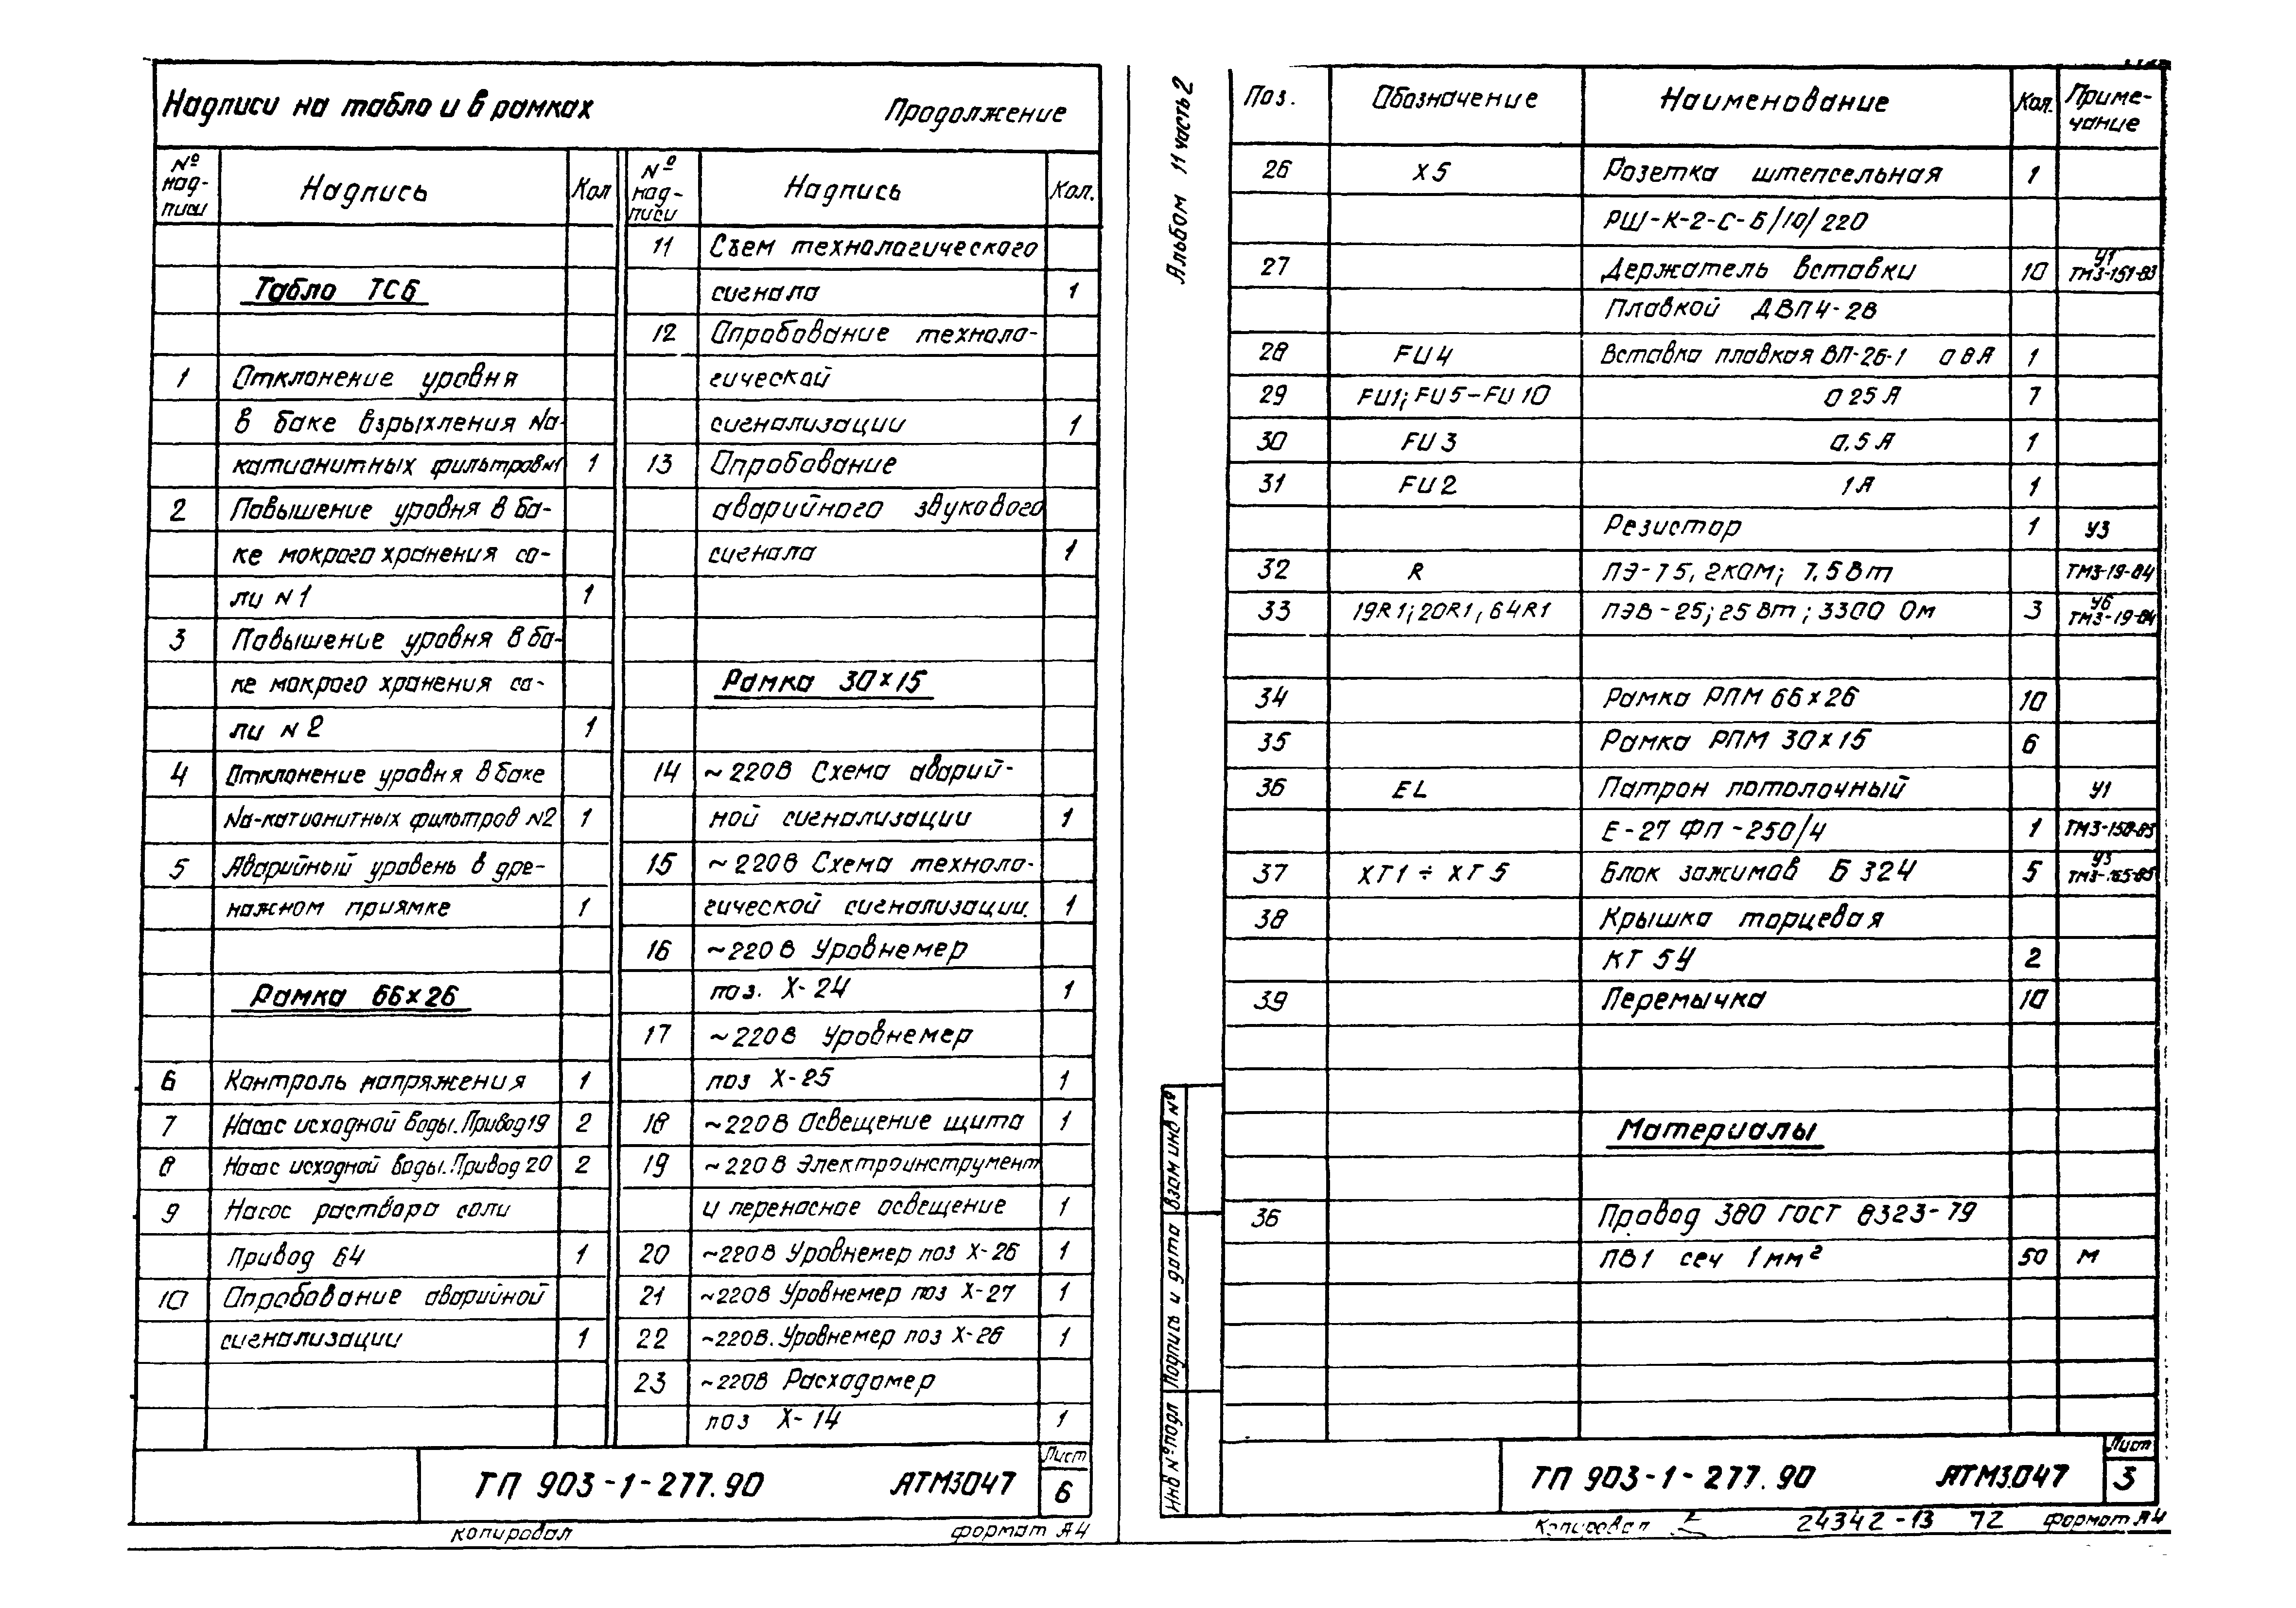 Надписи на табло и в рамках Продолжение
№ надписи Надпись Кол № надписи Надпись Кол.
Табло ТСБ
1 Отклонение уровня
в баке взрыхления Na-
катионитных фильтров N1 1
2 Повышение уровня в ба-
ке мокрого хранения со-
ли N1 1
3 Повышение уровня в ба-
ке мокрого хранения со-
ли N2 1
4 Отклонение уровня в баке
Na-катионитных фильтров N2 1
5 Аварийный уровень в дре-
нажном приямке 1
Рамка 66×26
6 Контроль напряжения 1
7 Насос исходной воды. Привод 19 2
8 Насос исходной воды. Привод 20 2
9 Насос раствора соли
Привод 64 1
10 Опробование аварийной
сигнализации 1
11 Съем технологического
сигнала 1
12 Опробование техноло-
гической
сигнализации 1
13 Опробование
аварийного звукового
сигнала 1
Рамка 30×15
14 ~220В Схема аварий-
ной сигнализации 1
15 ~220В Схема техноло-
гической сигнализации. 1
16 ~220В Уровнемер
поз. X-24 1
17 ~220В Уровнемер
поз X-25 1
18 ~220В Освещение щита 1
19 ~220В Электроинструмент
и переносное освещение 1
20 ~220В Уровнемер поз X-26 1
21 ~220В Уровнемер поз X-27 1
22 ~220В. Уровнемер поз X-26 1
23 ~220В Расходомер
поз X-14 1
ТП 903-1-277.90 АТМ3047 Лист 6
копировал формат А4
Альбом 11 часть 2
Поз. Обозначение Наименование Кол. Приме-
чание
26 X5 Розетка штепсельная 1
РШ-К-2-С-Б/10/220
27 Держатель вставки 10 У1 ТМ3-151-83
Плавкой ДВП4-2В
28 FU4 Вставка плавкая ВП-2б-1 0 8А 1
29 FU1; FU5-FU10 0 25А 7
30 FU3 0.5А 1
31 FU2 1А 1
Резистор 1 У3
32 R ПЭ-75, 2кОм; 7.5Вт ТМ3-19-84
33 19R1; 20R1, 64R1 ПЭВ-25; 25Вт; 3300 Ом 3 У6 ТМ3-19-84
34 Рамка РПМ 66×26 10
35 Рамка РПМ 30×15 6
36 EL Патрон потолочный У1
Е-27 ФП-250/4 1 ТМ3-150-83
37 XT1÷XT5 Блок зажимов Б324 5 У3
38 Крышка торцевая
КТ 5У 2
39 Перемычка 10
Материалы
36 Провод 380 ГОСТ 6323-79
ПВ1 сеч 1мм² 50 м
Инв № подл Подпись и дата Взам инв №
ТП 903-1-277.90 АТМ3.047 Лист 3
Копировал 24342-13 72 формат А4